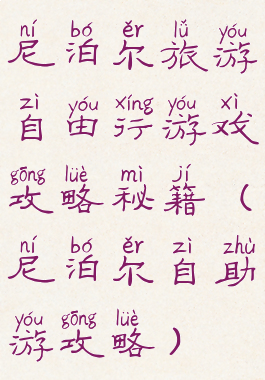 ní bó ěr lǚ yóu
尼泊尔旅游
zì yóu xíng yóu xì
自由行游戏
gōng lüè mì jí
攻略秘籍（
ní bó ěr zì zhù
尼泊尔自助
yóu gōng lüè
游攻略）